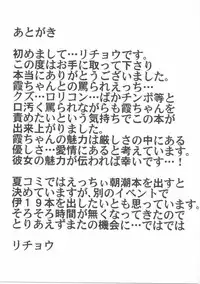 あとがき
初めまして…リチョウです。
この度はお手に取って下さり
本当にありがとうございました。
霞ちゃんとの罵られえっち…
クズ…ロリコン…ばかチンポ等と
口汚く罵られながらも霞ちゃんを
責めたいという気持ちでこの本が
出来上がりました。
霞ちゃんの魅力は厳しさの中にある
優しさ…愛情にあると考えています。
彼女の魅力が伝われば幸いです…！
夏コミではえっちぃ朝潮本を出すと
決めていますが、別のイベントで
伊１９本を出したいとも思っています。
そろそろ時間が無くなってきたので
とりあえずまたの機会に…ではでは
リチョウ